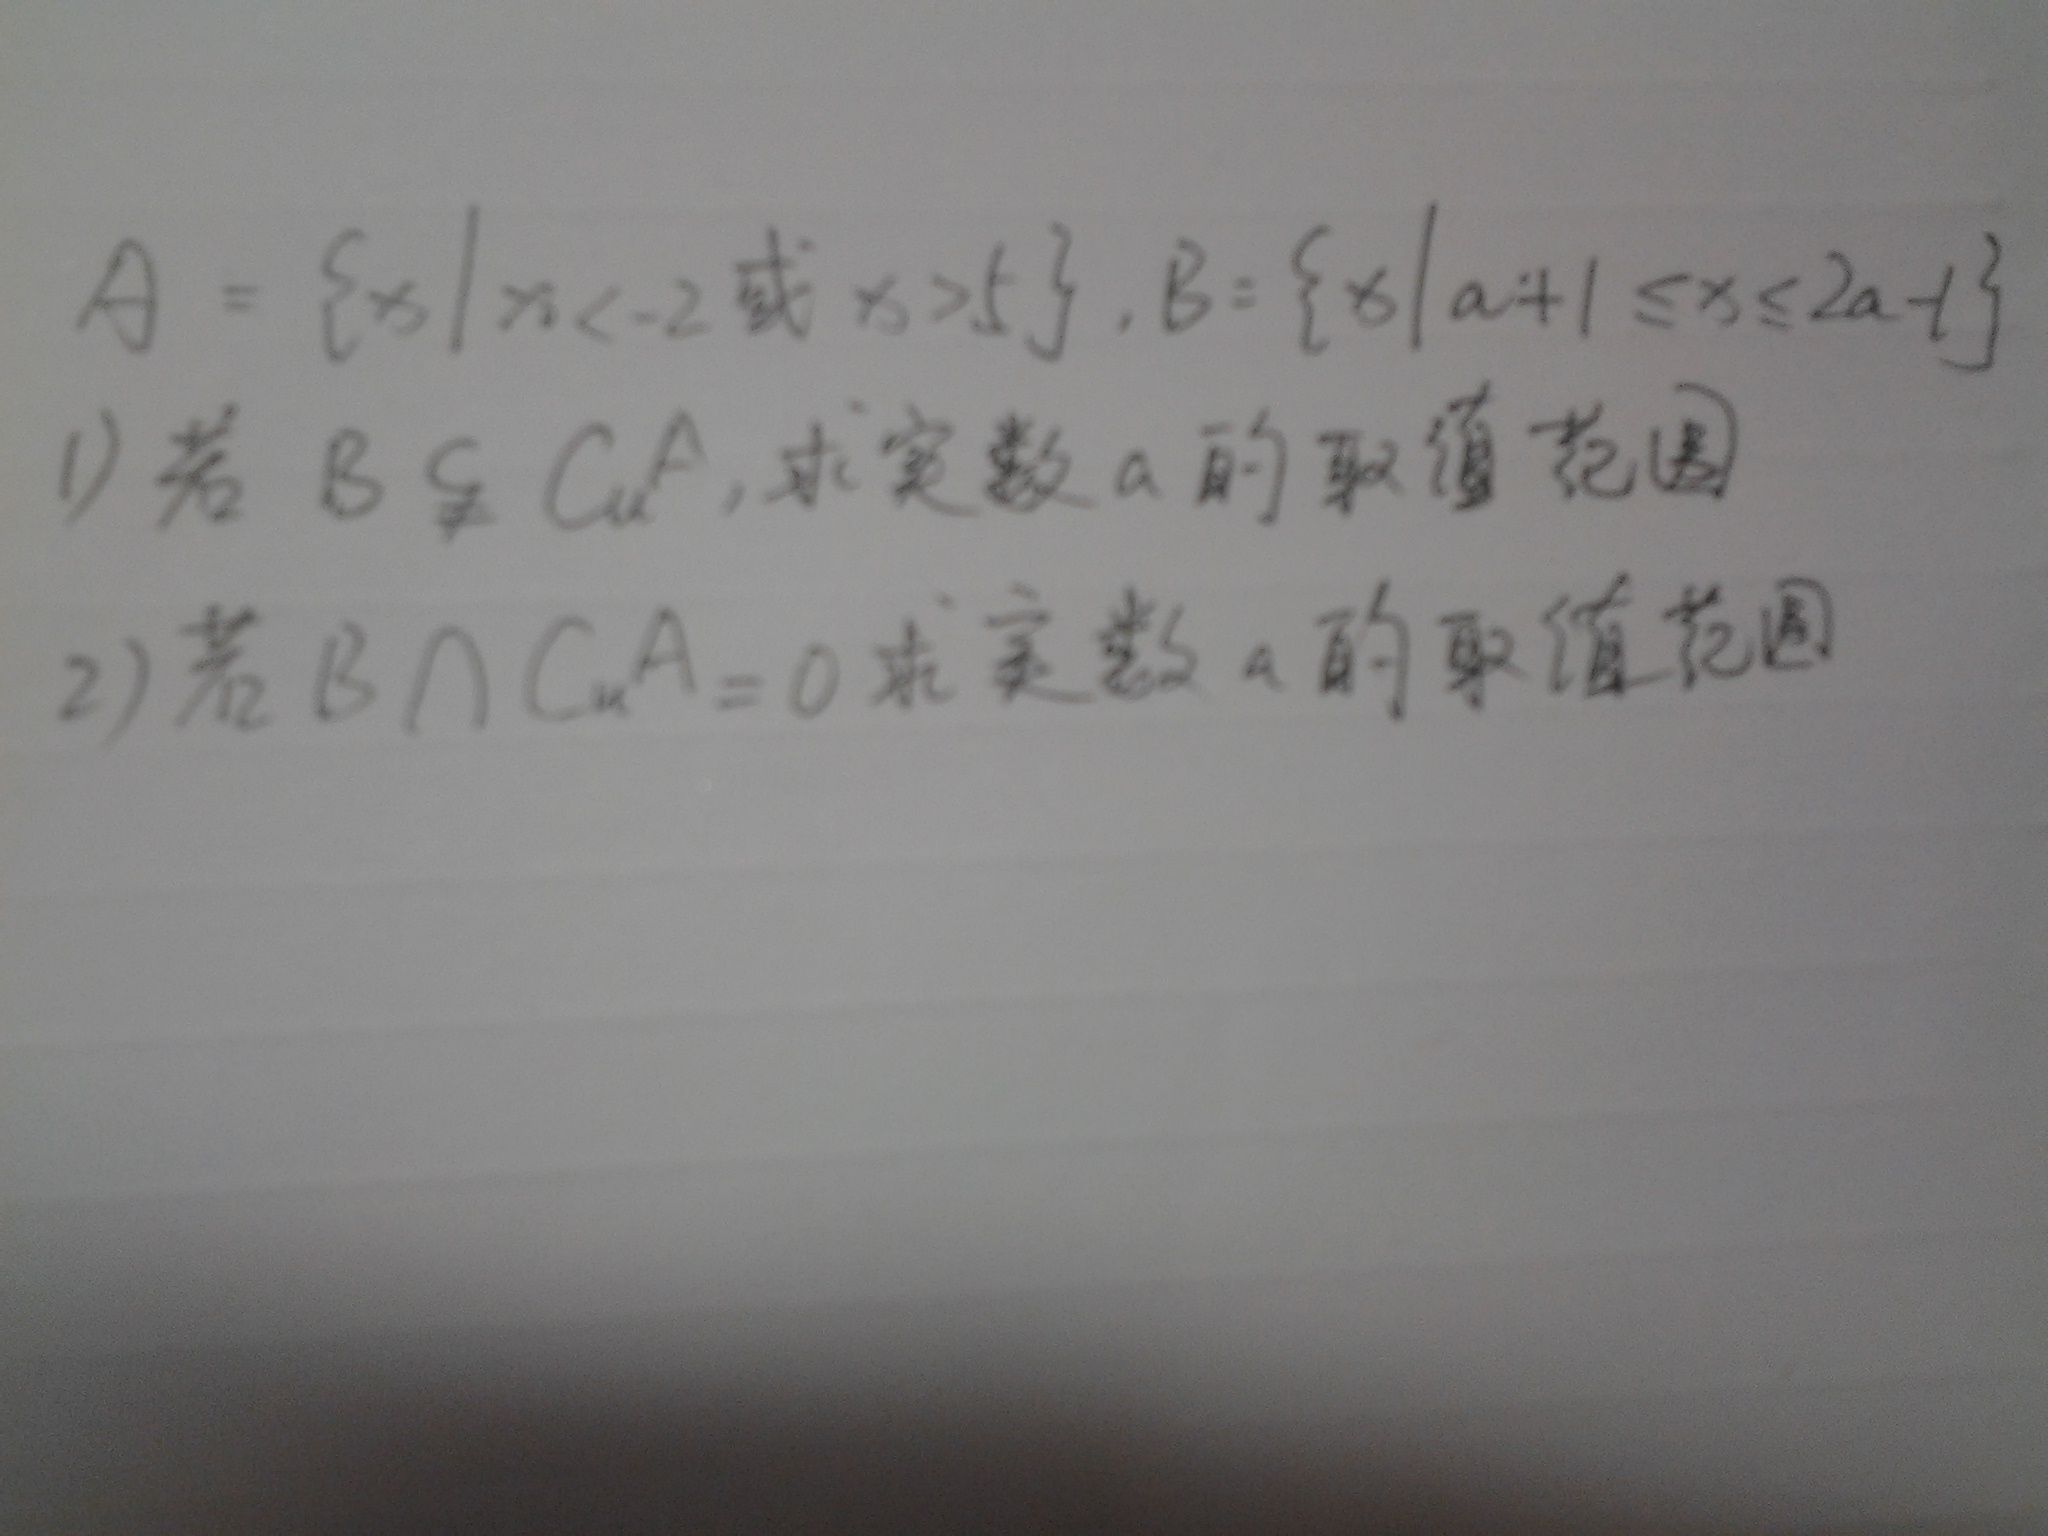 A = {x|x<-2或x>5}, B={x|a+1≤x≤2a-1}
1) 若 B⫋CuA, 求实数a的取值范围
2) 若 B∩CuA=0 求实数a的取值范围